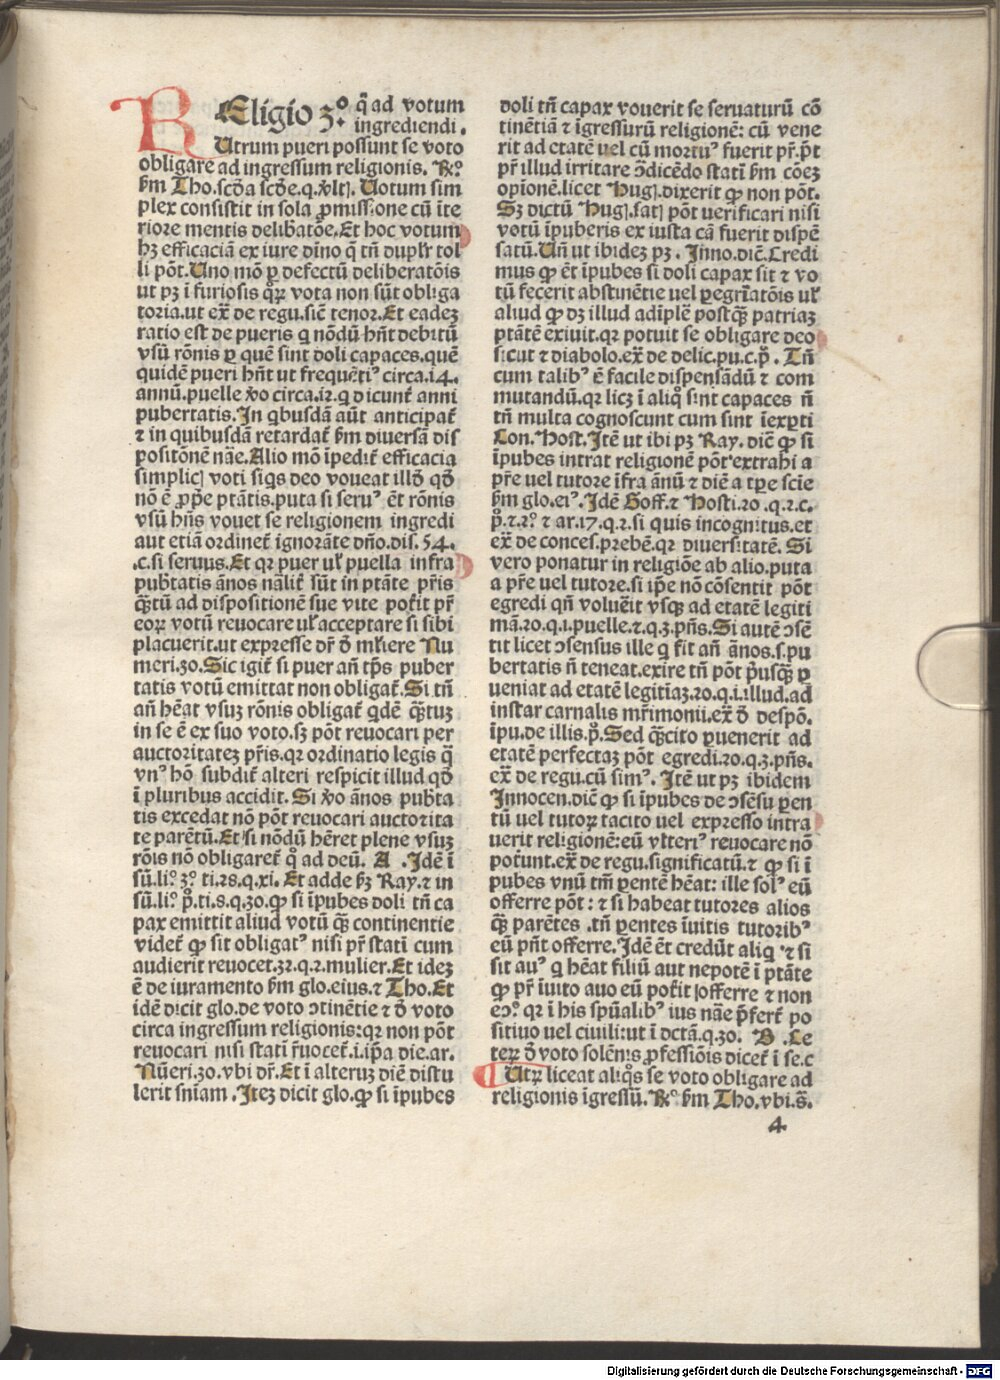 REligio 3º. q̃ ad votum
ingrediendi.
Utrum pueri possunt se voto
obligare ad ingressum religionis. ℞º.
s̃m Tho. scďa scďe. q. v̓ltꝭ. Uotum sim
plex consistit in sola ꝓmissione cũ ĩte
riore mentis delib̃atõe. Et hoc votum
hꝫ efficaciã ex iure diño q̇ tñ dupl̓r tol
li põt. Uno mõ ꝑ defectũ deliberatõis
ut pꝫ ĩ furiosis q̊ꝝ vota non sũt obliga
toria. ut ex̃ de regu. siẽ tenor. Et eadeꝫ
ratio est de pueris q̇ nõdũ hñt debitũ
vsũ rõnis ꝑ quẽ sint doli capaces. quẽ
quidẽ pueri hñt ut frequẽtiꝰ circa. 14.
annũ. puelle v̓o circa. 12. q̇ dicunt̃ anni
pubertatis. In q̇busdã aũt anticipat̃
⁊ in quibusdã retardat̃ s̃m diuersã dis
positõnẽ nãe. Alio mõ ĩpedit̃ efficacia
simplicꝭ voti siq̇s deo voueat illď qď
nõ ẽ ꝓp̃e ptãtis. puta si seruꝰ ẽt rõnis
vsũ hñs vouet se religionem ingredi
aut etiã ordinet̃ ignorãte dño. dis. 54.
.c. si seruus. Et qꝛ puer ul̓ puella infra
pub̃tatis ãnos nãlit̃ sũt in ptãte pr̃is
q̃tũ ad dispositionẽ sue vite pot̃it pr̃
eoꝝ votũ reuocare ul̓ acceptare si sibi
placuerit. ut expresse dr̃ ď ml̓iere Nu
meri. 30. Sic igit̃ si puer añ tp̃s puber
tatis votũ emittat non obligat̃. Si tñ
añ hẽat vsuꝫ rõnis obligat̃ q̇dẽ q̃tuꝫ
in se ẽ ex suo voto. sꝫ põt reuocari per
auctoritateꝫ pr̃is. qꝛ ordinatio legis q̃
vnꝰ hõ subdit̃ alteri respicit illud qď
ĩ pluribus accidit. Si v̓o ãnos pub̃ta
tis excedat nõ põt reuocari auctorita
te parẽtũ. Et si nõdũ hẽret plene vsuꝫ
rõis nõ obligaret̃ q̊ ad deũ. A . Idẽ ĩ
sũ. liº. 3º. ti. 28. q. xi. Et adde s̃ꝫ Ray. ⁊ in
sũ. liº. pº. ti. 8. q. 30. ꝙ si ĩpubes doli tñ ca
pax emittit aliud votũ q̃ꝫ continentie
videt̃ ꝙ sit obligatꝰ nisi pr̃ statĩ cum
audierit reuocet. 32. q. 2. mulier. Et ideꝫ
ẽ de iuramento s̃m glo. eius. ⁊ Tho. Et
idẽ dicit glo. de voto ↄtinẽtie ⁊ ď voto
circa ingressum religionis: qꝛ non põt
reuocari nisi statĩ r̃uocet̃. i. ip̃a die. ar.
Nũeri. 30. vbi dr̃. Et ĩ alteruꝫ diẽ distu
lerit sñiam. Iteꝫ dicit glo. ꝙ si ĩpubes
doli tñ capax vouerit se seruaturũ cõ
tinẽtiã ⁊ ĩgressurũ religionẽ: cũ vene
rit ad etatẽ uel cũ mortuꝰ fuerit pr̃. p̃t
pr̃ illud irritare ↄ̃dicẽdo statĩ s̃m cõeꝫ
opĩonẽ. licet Hugꝭ. dixerit ꝙ non põt.
Sꝫ dictũ Hugꝭ. satꝭ põt uerificari nisi
votũ ĩpuberis ex iusta cã fuerit dispẽ
satũ. Uñ ut ibideꝫ pꝫ. Inno. diẽ. Credi
mus ꝙ ẽt ĩpubes si doli capax sit ⁊ vo
tũ fecerit abstinẽtie uel ꝑegriñatõis ul̓
aliud ꝙ dꝫ illud adĩplẽ postq̃ꝫ patriaꝫ
ptãtẽ exiuit. qꝛ potuit se obligare deo
sicut ⁊ diabolo. ex̃ de delic. pu. c. p̊. Tñ
cum talibꝰ ẽ facile dispensãdũ ⁊ com
mutandũ. qꝛ licꝫ ĩ aliq̇ sint capaces ñ
tñ multa cognoscunt cum sint ĩexꝑti
Con. Host. Itẽ ut ibi pꝫ Ray. diẽ ꝙ si
ĩpubes intrat religionẽ põt extrahi a
pr̃e uel tutore ĩfra ãnũ ⁊ diẽ a tp̃e sciẽ
s̃m glo. eiꝰ. Idẽ Goff. ⁊ Hosti. 20. q. 2. c.
p̊. ⁊. 2º. ⁊ ar. 17. q. 2. si quis incognitus. et
ex̃ de conces. prebẽ. qꝛ diuersitatẽ. Si
vero ponatur in religiõe ab alio. puta
a pr̃e uel tutore. si ip̃e nõ cõsentit põt
egredi qñ voluẽit vsqꝫ ad etatẽ legiti
mã. 20. q. 1. puelle. ⁊. q. 3. pñs. Si autẽ ↄsẽ
tit licet ↄsensus ille q̇ fit añ ãnos. s. pu
bertatis ñ teneat. exire tñ põt p̃usq̃ꝫ ꝑ
ueniat ad etatẽ legitiaꝫ. 20. q. 1. illud. ad
instar carnalis mr̃imonii. ex̃ ď despõ.
ĩpu. de illis. p̊. Sed q̃cito ꝑuenerit ad
etatẽ perfectaꝫ põt egredi. 20. q. 3. pñs.
ex̃ de regu. cũ simꝰ. Itẽ ut pꝫ ibidem
Innocen. diẽ ꝙ si ĩpubes de ↄsẽsu ꝑen
tũ uel tutoꝝ tacito uel expresso intra
uerit religionẽ: eũ vlteriꝰ reuocare nõ
pot̃unt. ex̃ de regu. significatũ. ⁊ ꝙ si ĩ
pubes vnũ tm̃ ꝑentẽ hẽat: ille solꝰ eũ
offerre põt: ⁊ si habeat tutores alios
q̃ꝫ parẽtes. tñ ꝑentes ĩuitis tutoribꝰ
eũ pñt offerre. Idẽ ẽt credũt aliq̇ ⁊ si
sit auꝰ q̇ hẽat filiũ aut nepotẽ ĩ ptãte
ꝙ pr̃ ĩuito auo eũ pot̃it offerre ⁊ non
eↄº. qꝛ ĩ his sp̃ualibꝰ ius nãe p̃fert̃ po
sitiuo uel ciuili: ut ĩ dctã. q. 30. B . Ce
teꝝ ď voto solẽnis ꝓfessiõis dicet̃ ĩ se. c
Utꝝ liceat aliq̊s se voto obligare ad
religionis ĩgressũ. ℞º s̃m Tho. vbi. s̃.
4
Digitalisierung gefördert durch die Deutsche Forschungsgemeinschaft - DFG